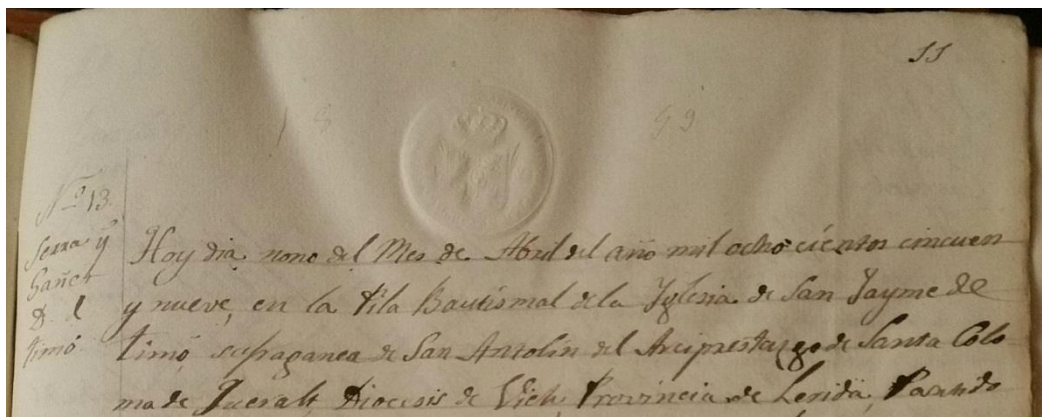 11
18 59
Nº 13.
Serra y
Gañet
D l
timó
Hoy dia nono del Mes de Abril del año mil ocho cientos cincuen
y nueve, en la Pila Bautismal de la Yglesia de San Jayme de
timó, sufraganea de San Antolin del Arciprestazgo de Santa Colo-
ma de Queralt, Diocesis de Vich, Provincia de Lerida,